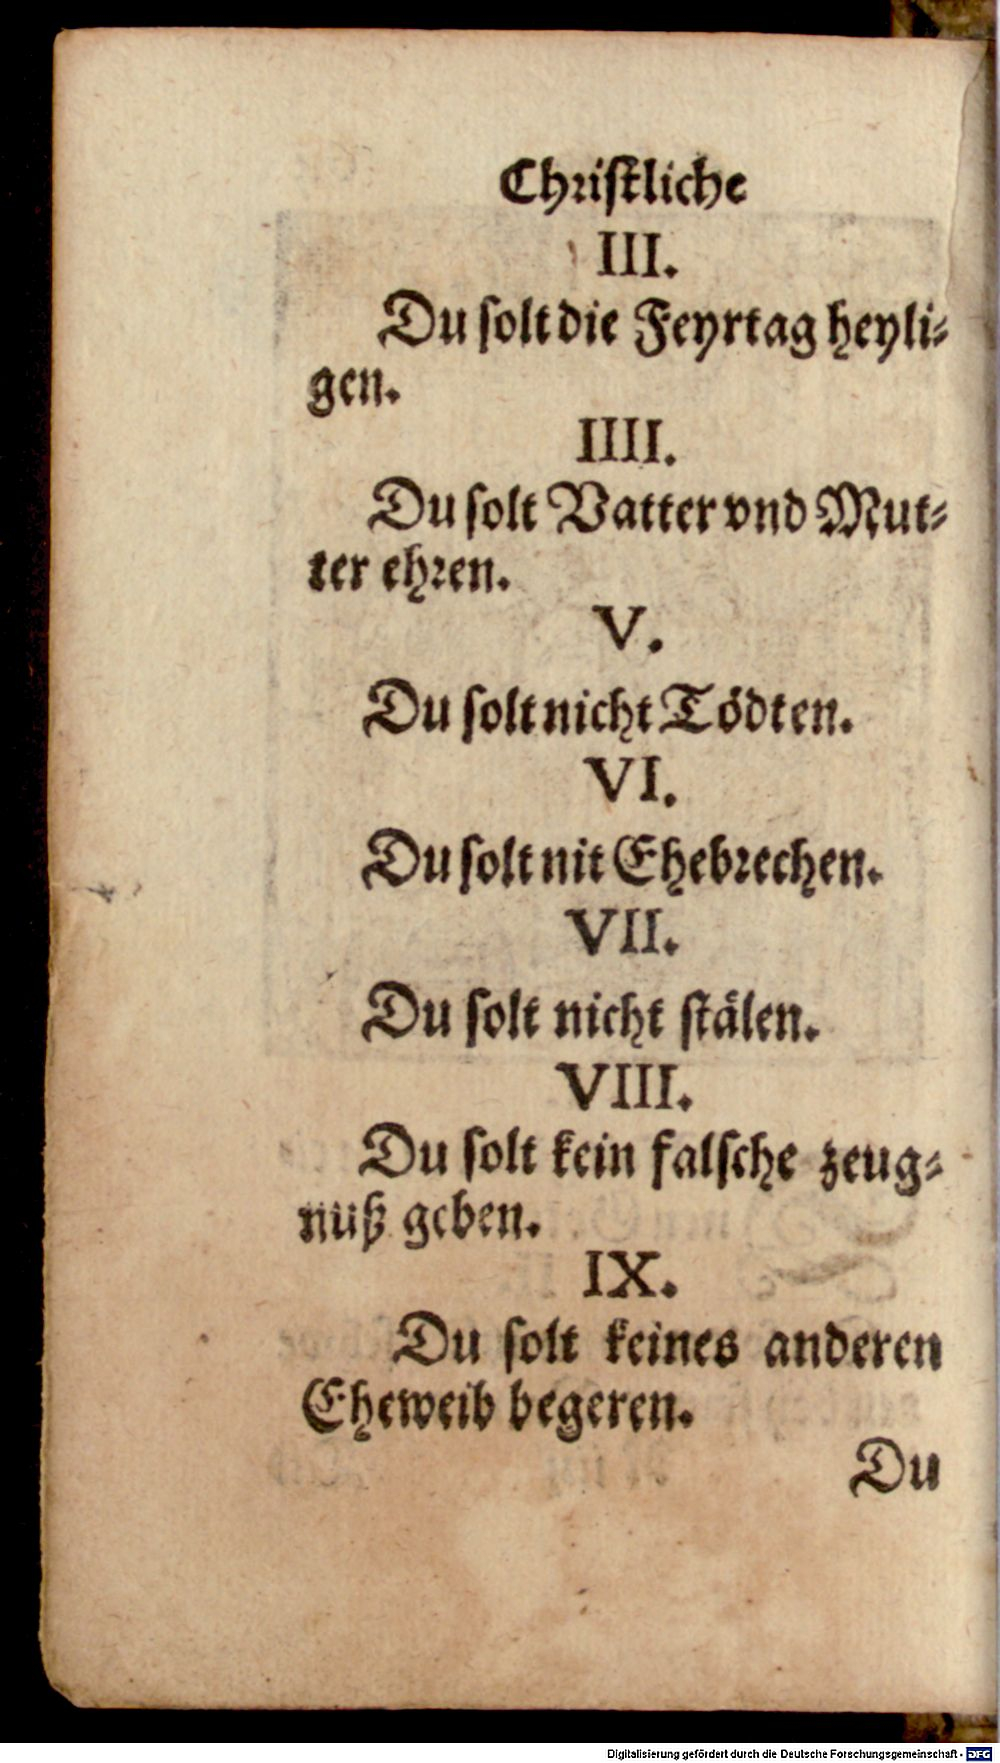 Christliche
III.
Du solt die Feyrtag heyli-
gen.
IIII.
Du solt Vatter vnd Mut-
ter ehren.
V.
Du solt nicht Tödten.
VI.
Du solt nit Ehebrechen.
VII.
Du solt nicht stälen.
VIII.
Du solt kein falsche zeug-
nuß geben.
IX.
Du solt keines anderen
Eheweib begeren.
Du
Digitalisierung gefördert durch die Deutsche Forschungsgemeinschaft - DFG